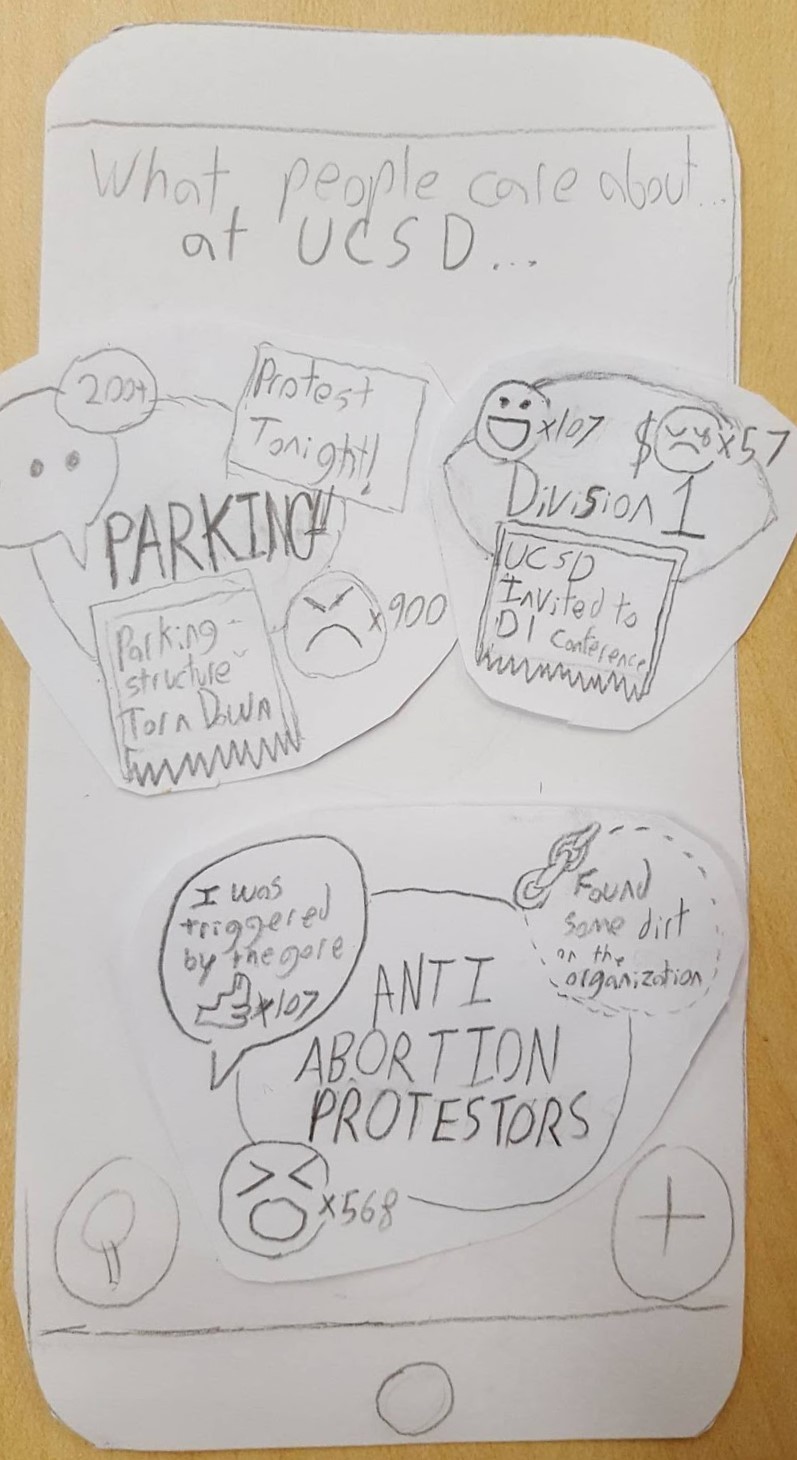 What people care about...
at UCSD...
200+
Protest
Tonight!
PARKING!!
x900
Parking
structure
Torn Down
x107
$ x57
Division 1
UCSD
Invited to
D1 Conference
I was
triggered
by the gore
x107
Found
some dirt
on the
organization
ANTI
ABORTION
PROTESTORS
x568
+